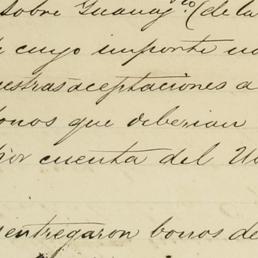 sobre Guanajto (de la
de cuyo importe no
nuestras aceptaciones a
bonos que deberian
por cuenta del
entregaron bonos de